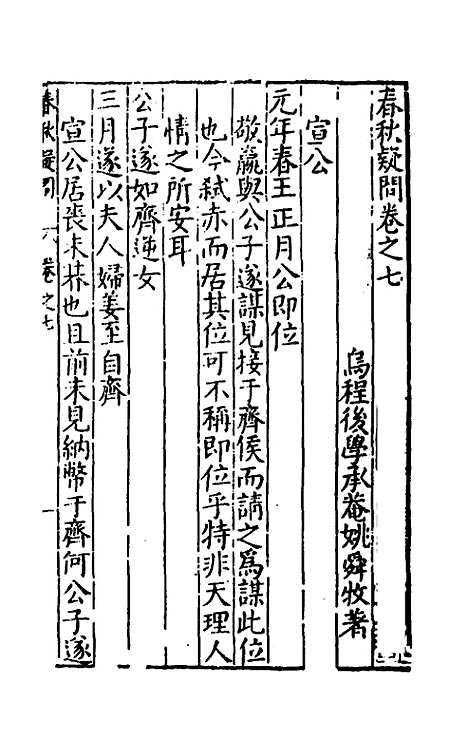 春秋疑問卷之七
烏程後學承菴姚舜牧著
宣公
元年春王正月公即位
敬嬴與公子遂謀見接于齊侯而請之爲謀此位
也今弒赤而居其位可不稱即位乎特非天理人
情之所安耳
公子遂如齊逆女
三月遂以夫人婦姜至自齊
宣公居喪未朞也且前未見納幣于齊何公子遂
春秋疑問 卷之七 一